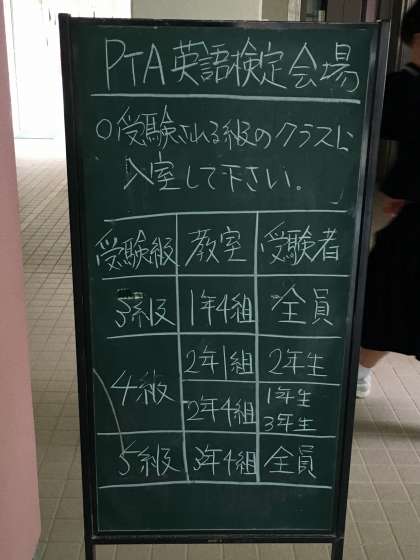 PTA英語検定会場
○受験される級のクラスに
入室して下さい。
受験級 教室 受験者
3級 1年4組 全員
4級 2年1組 2年生
2年4組 1年生
3年生
5級 3年4組 全員